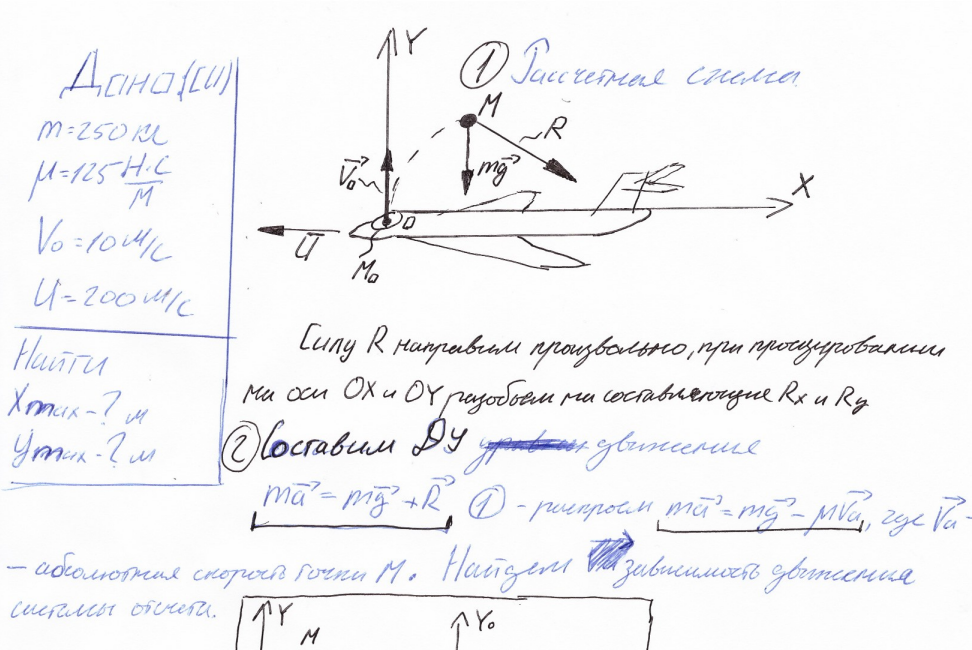 Дано (СИ)
m=250 кг
μ=125 Н·с/м
V₀=10 м/с
U=200 м/с
Найти
Xmax-? м
Ymax-? м
Y
① Рассчетная схема
M
R
mg
V₀
O
X
U
M₀
Силу R направим произвольно, при проецировании
на оси OX и OY разобьем на составляющие Rx и Ry
② Составим ДУ движения
ma=mg+R ① - распишем ma=mg-μVa, где Va-
- абсолютная скорость точки M. Найдем зависимость движения
системы отсчета.
Y
M
Y₀